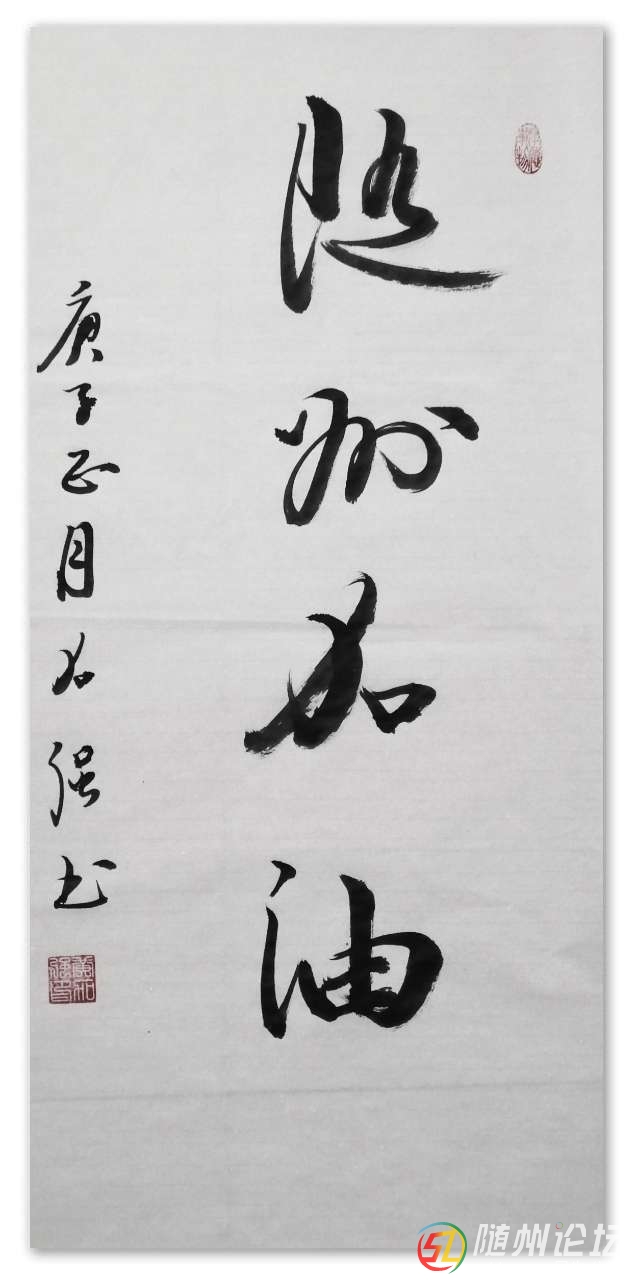 随州加油
庚子正月加强书
随州论坛